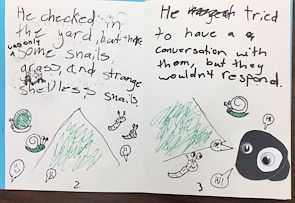 He checked in
the yard, but there
was only
some snails,
grass, and strange
shelless snails
2
He tried
to have a
conversation with
them, but they
wouldn't respond.
Hi!
3